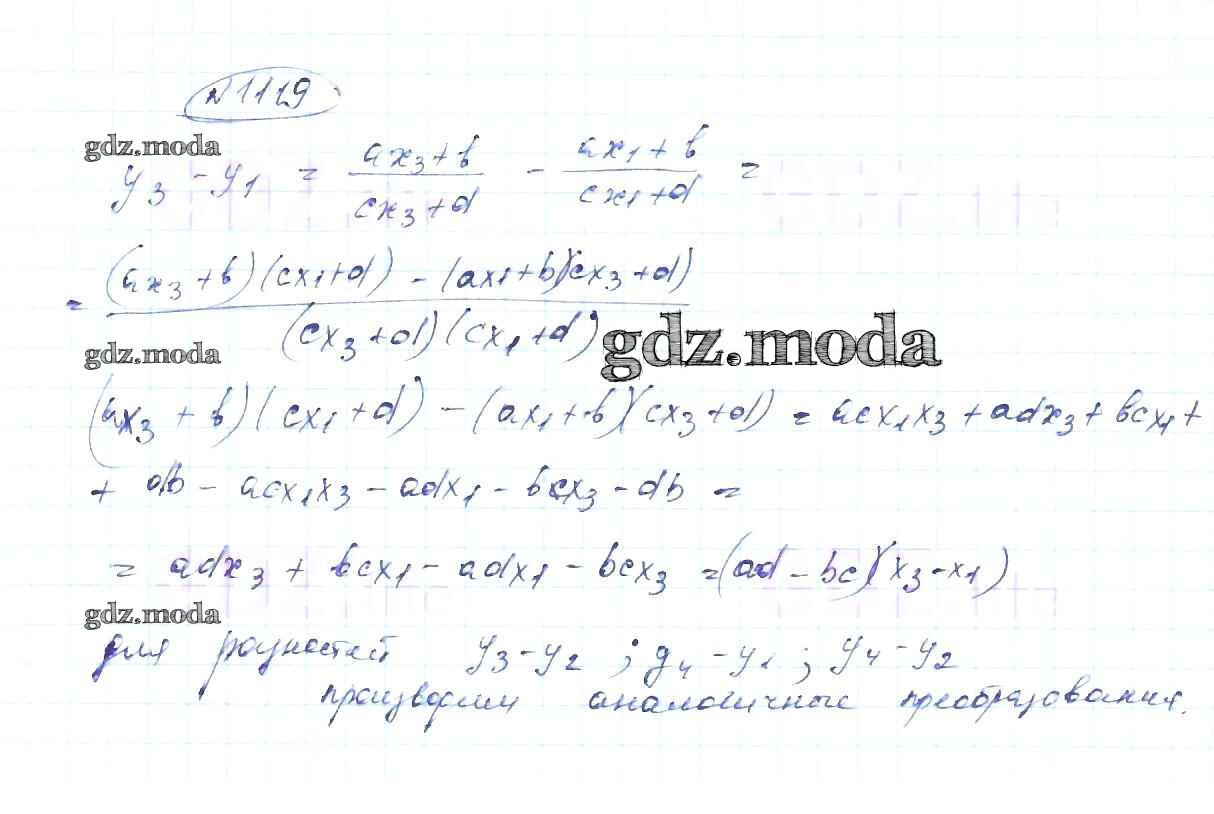 №1119
gdz.moda
y₃ - y₁ = (ax₃+b)/(cx₃+d) - (ax₁+b)/(cx₁+d) =
= ((ax₃+b)(cx₁+d) - (ax₁+b)(cx₃+d))/((cx₃+d)(cx₁+d))
gdz.moda
gdz.moda
(ax₃+b)(cx₁+d) - (ax₁+b)(cx₃+d) = acx₁x₃ + adx₃ + bcx₁ +
+ db - acx₁x₃ - adx₁ - bcx₃ - db =
= adx₃ + bcx₁ - adx₁ - bcx₃ = (ad - bc)(x₃-x₁)
gdz.moda
для разностей y₃-y₂ ; y₄-y₁ ; y₄-y₂
производим аналогичные преобразования.